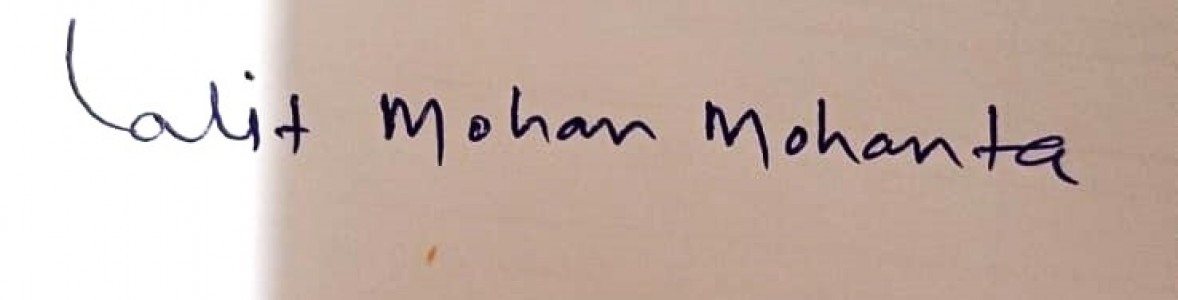 Lalit Mohan Mohanta